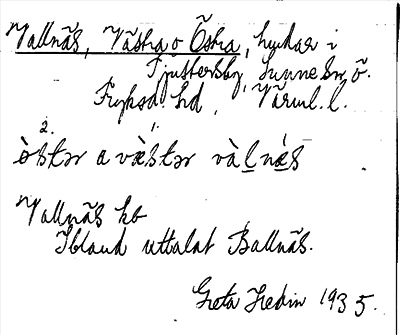 Vallnäs, Västra o Östra, byar i
Tjustersby, Sunne sn, ö.
Fryksd. hd, Värml. l.
2. 1.
òstər a væ̀stər vàl̲næ̲s
Vallnäs kb
Ibland uttalat Ballnäs.
Greta Hedin 1935.